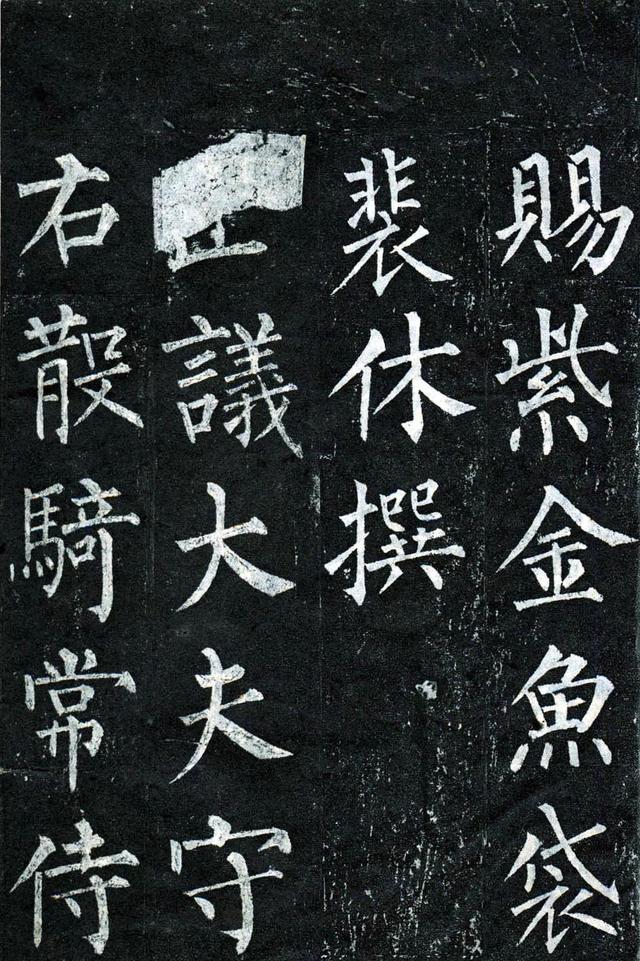 賜紫金魚袋
裴休撰
議大夫守
右散騎常侍